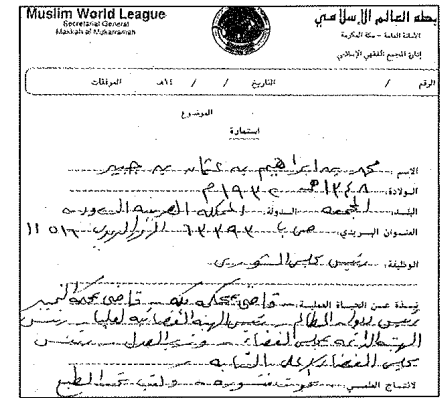 Muslim World League
Secretariat General
Makkah al Mukarramah
رابطة العالم الإسلامي
الأمانة العامة - مكة المكرمة
إدارة المجمع الفقهي الإسلامي
الرقم / التاريخ / / ١٤هـ المرفقات
الموضوع
استمارة
الاسم: محمد بن إبراهيم بن عثمان بن جبير
الولادة: ١٣٤٨هـ ١٩٣٠م
البلد: المجمعة الدولة: المملكة العربية السعودية
العنوان البريدي: ص ب ٦٢٣٩٣ الرمز البريدي ١١٥١٦
الوظيفة: رئيس مجلس الشورى
نبذة عن الحياة العملية: قاضي محكمة مكة - قاضي محكمة التمييز
رئيس ديوان المظالم - رئيس الهيئة القضائية العليا - رئيس
الهيئة الدائمة بمجلس القضاء - وزير العدل - رئيس
مجلس القضاء الأعلى بالنيابة
الانتاج العلمي: بحوث منشورة - وكتب تحت الطبع